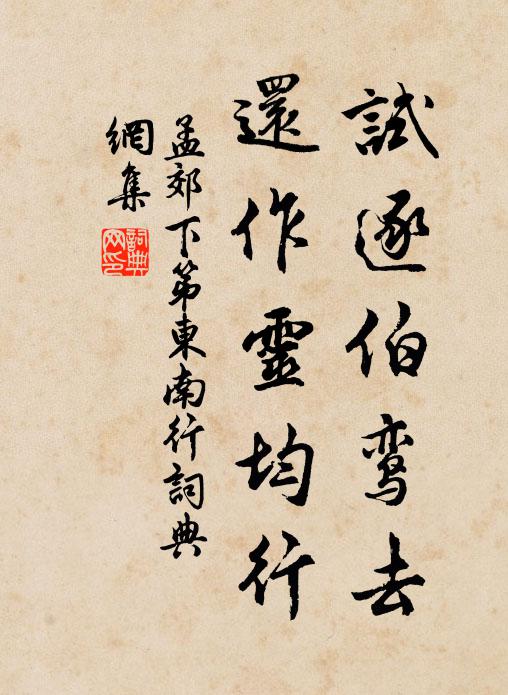 試逐伯鸾去
還作靈均行
孟郊下第東南行詞典
網集
詞典
网印